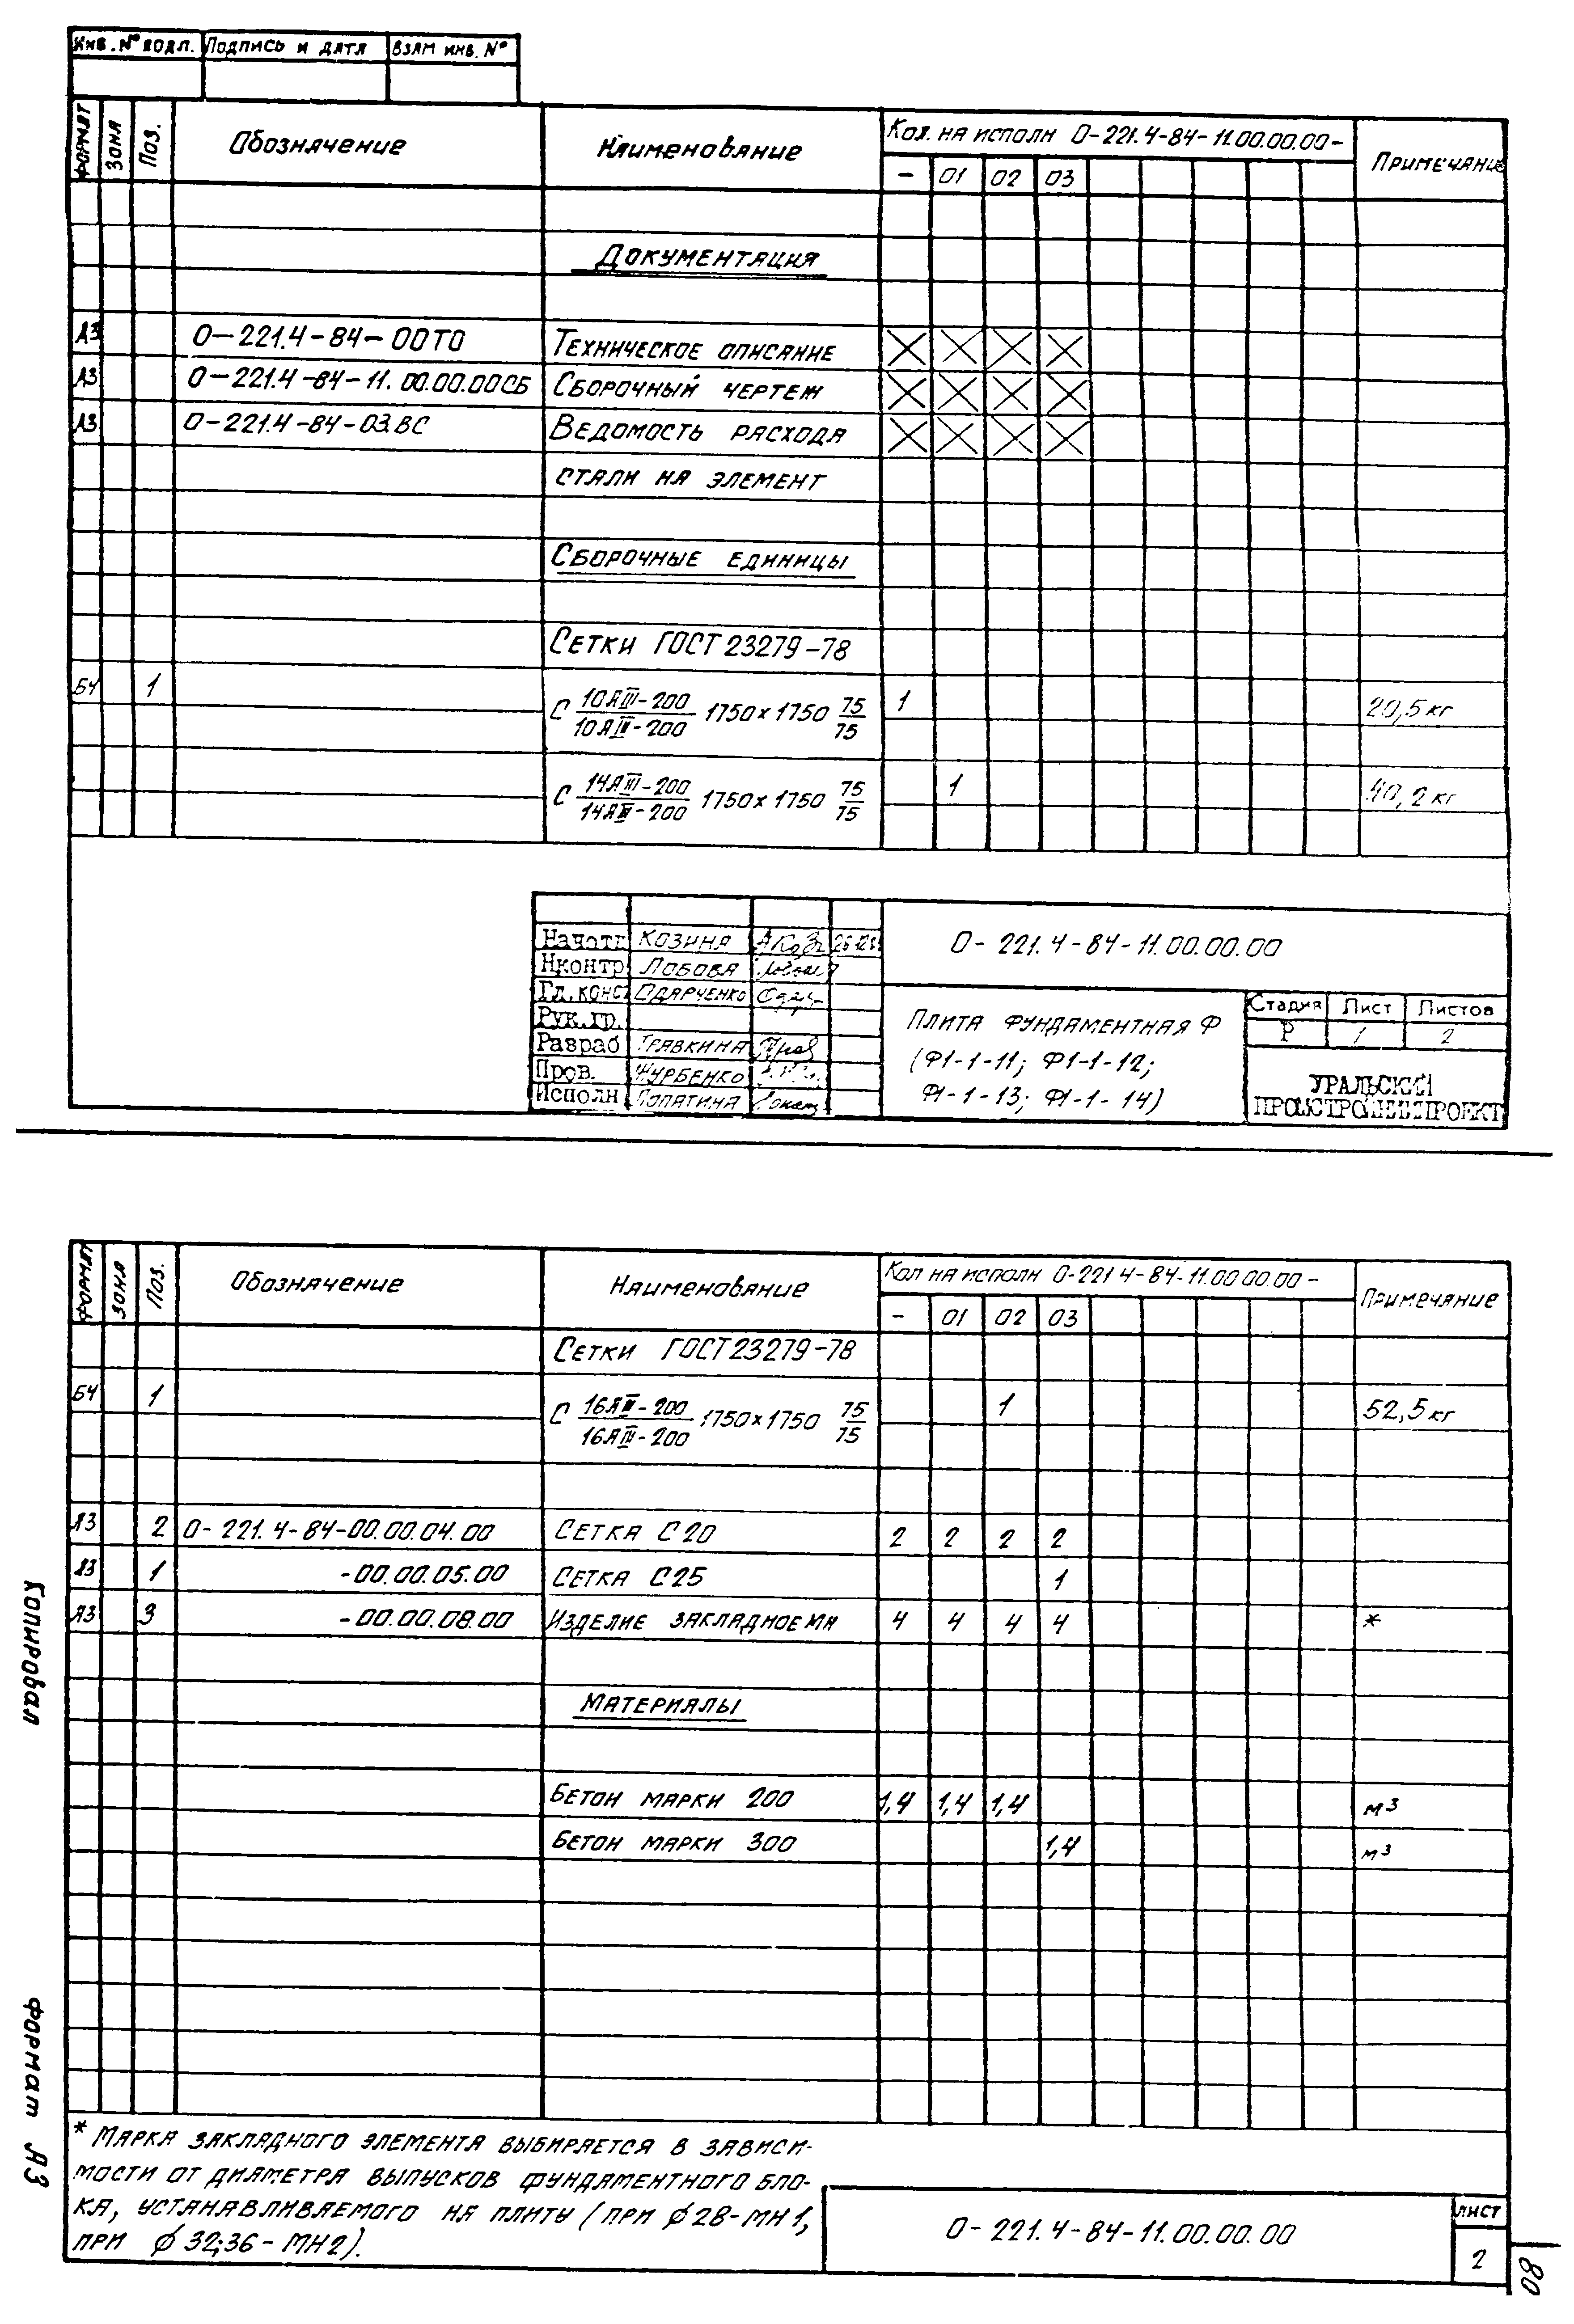 Инв. № подл. Подпись и дата Взам инв. №
Формат Зона Поз. Обозначение Наименование Кол. на исполн О-221.4-84-11.00.00.00- Примечание
- 01 02 03
Документация
А3 О-221.4-84-00ТО Техническое описание X X X X
А3 О-221.4-84-11.00.00.00СБ Сборочный чертеж X X X X
А3 О-221.4-84-03.ВС Ведомость расхода X X X X
стали на элемент
Сборочные единицы
Сетки ГОСТ 23279-78
БЧ 1 С 10АIII-200/10АIII-200 1750×1750 75/75 1 20,5 кг
С 14АIII-200/14АIII-200 1750×1750 75/75 1 40,2 кг
О-221.4-84-11.00.00.00
Начотд Козиня
Нконтр Лобова
Гл.конс Одярченко
Рук.гр.
Разраб Травкина
Пров. Журбенко
Исполн Лопатина
Плита фундаментная Ф
(Ф1-1-11; Ф1-1-12;
Ф1-1-13; Ф1-1-14)
Стадия Лист Листов
Р 1 2
УРАЛЬСКИЙ
ПРОМСТРОЙНИИПРОЕКТ
Формат Зона Поз. Обозначение Наименование Кол на исполн О-221 4-84-11.00 00.00- Примечание
- 01 02 03
Сетки ГОСТ 23279-78
БЧ 1 С 16АIII-200/16АIII-200 1750×1750 75/75 1 52,5 кг
А3 2 О-221.4-84-00.00.04.00 Сетка С20 2 2 2 2
А3 1 -00.00.05.00 Сетка С25 1
А3 3 -00.00.08.00 Изделие закладное МН 4 4 4 4 *
Материалы
Бетон марки 200 1,4 1,4 1,4 м³
Бетон марки 300 1,4 м³
* Марка закладного элемента выбирается в зависи-
мости от диаметра выпусков фундаментного бло-
ка, устанавливаемого на плиту (при ϕ28-МН1,
при ϕ 32;36-МН2).
О-221.4-84-11.00.00.00
Лист
2
80
Копировал
Формат А3